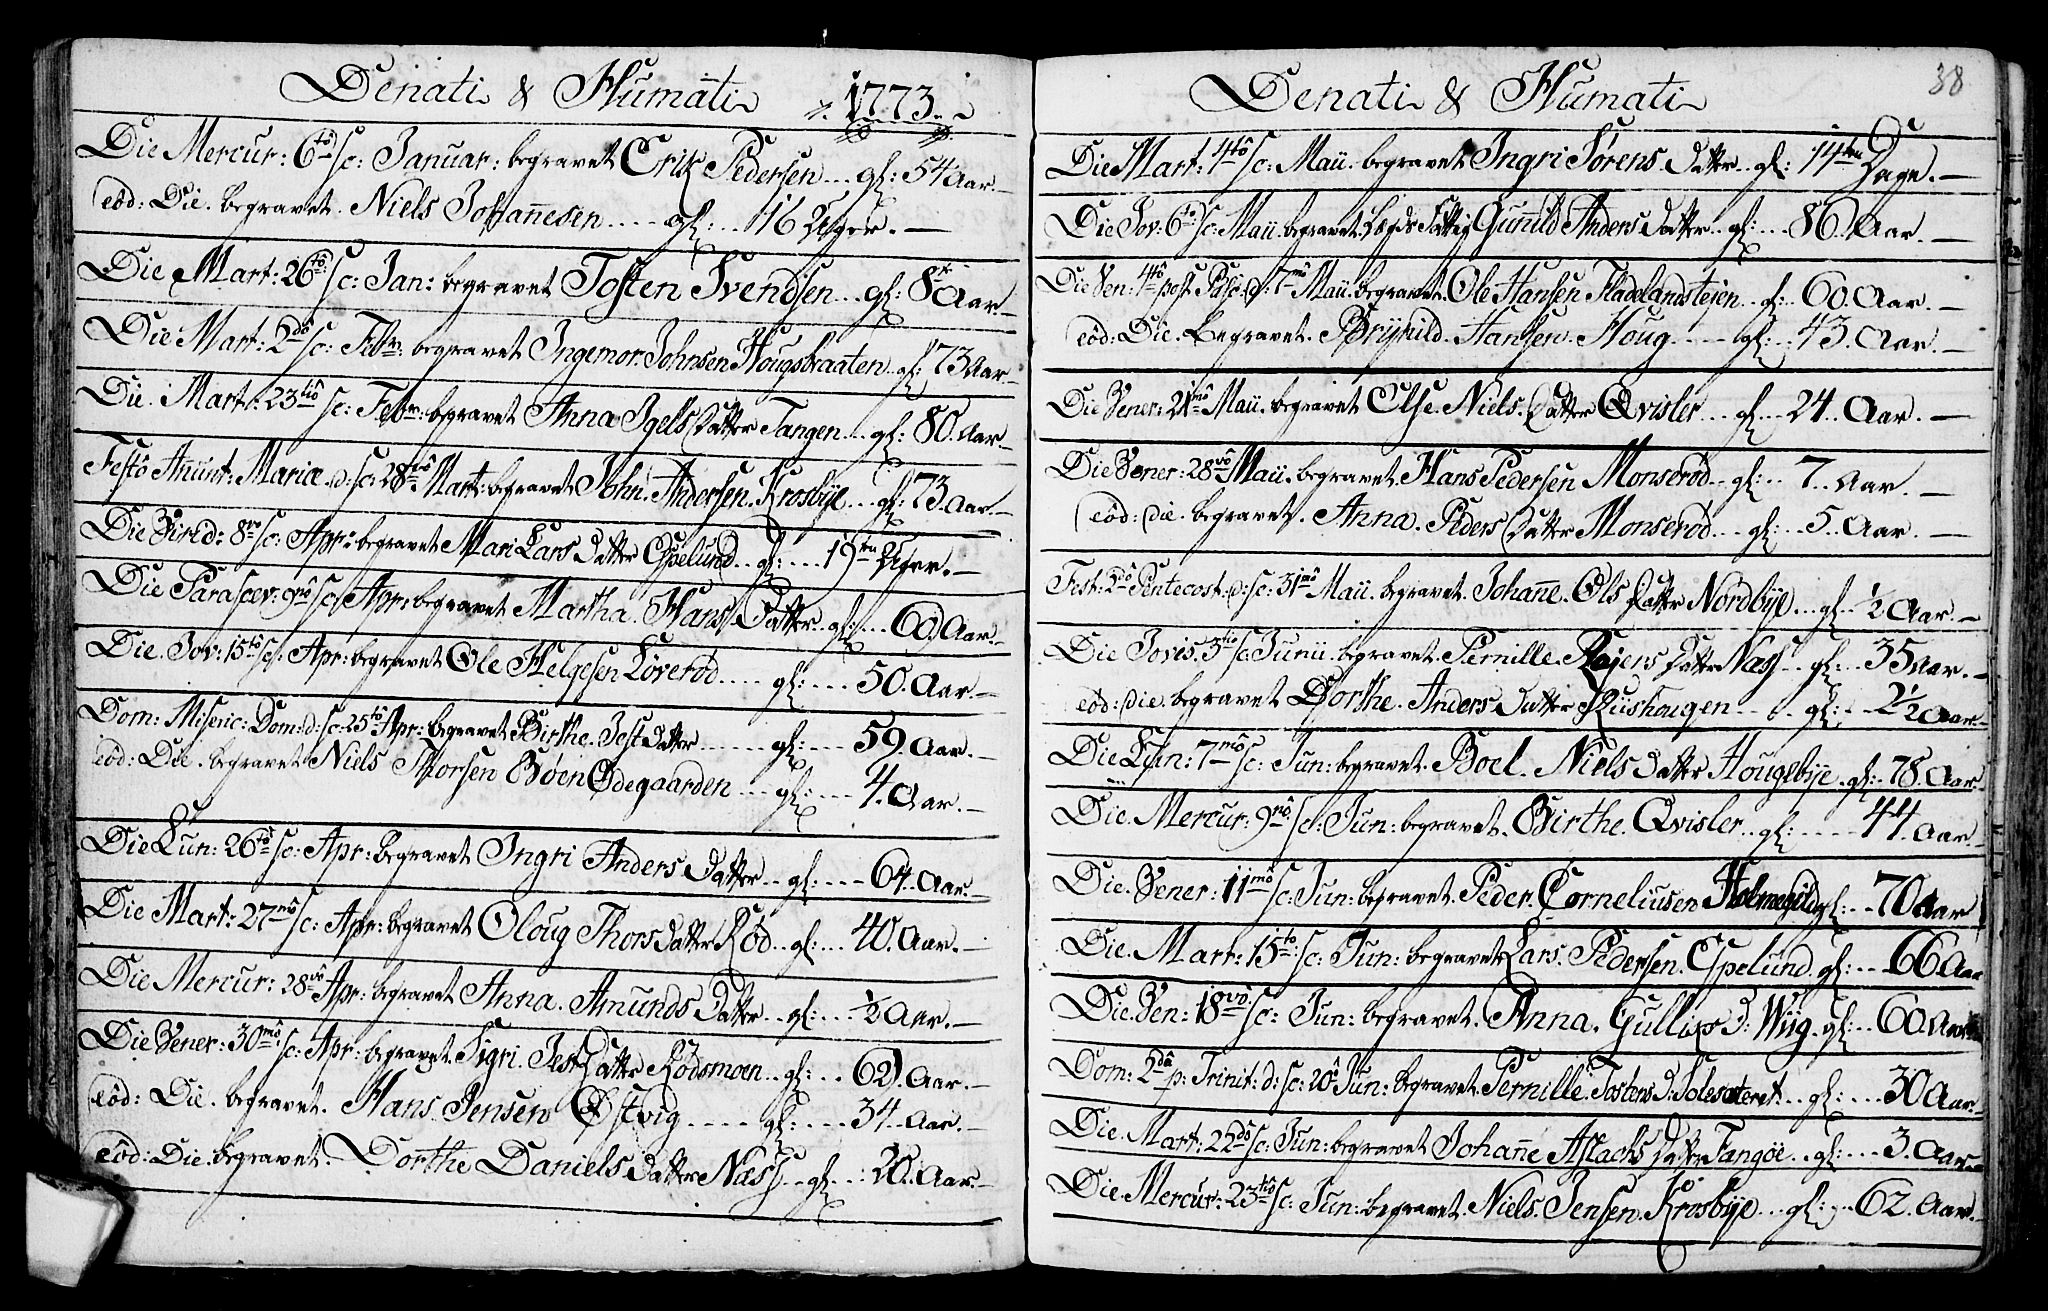 Denati & Humati 1773.
Die Mercur: 6tô sc: Januar: begravet Erik Pedersen ... gl: 54 Aar. —
eôd: Die. begravet. Niels Johannesen .... gl: ... 16 Uger. —
Die Mart: 26tô sc: Jan: begravet Tosten Svendsen ... gl: 8 Aar —
Die Mart: 2dô sc: Febr: begravet Ingemor Johnsen Hougsbraaten .. gl: 73 Aar —
Die Mart: 23tiô sc: Febr: begravet Anna Igels Datter Tangen ... gl: 80. Aar —
Festô Anunt: Mariæ. d: sc: 28vô Mart: begravet John. Andersen. Krosbÿe ... gl: 73 Aar. —
Die Virid: 8vo sc: Apr: begravet Mari Lars Datter Espelund .. gl: .... 19ten Uger. —
Die Parascev: 9nô sc: Apr: begravet Martha. Hans Datter .. gl: ... 60. Aar —
Die. Jov: 15tô sc: Apr: begravet Ole Helgesen Løverød ..... gl: .... 50. Aar. —
Dom: Miseric: Dom: d: sc: 25tô Apr: begravet Birthe. Jest Datter ...... gl: .... 59. Aar. —
eôd: Die. begravet Niels Thorsen Bøen Ødegaarden ... gl: ... 4. Aar. —
Die Lun: 26tô sc: Apr: begravet Ingri Anders Datter .. gl: .... 64. Aar. —
Die Mart: 27mô sc: Apr: begravet Oloug Thors Datter Rød .. gl: ... 40. Aar. —
Die Mercur: 28vô Apr: begravet Anna. Amunds Datter .. gl: ... ½ Aar. —
Die Vener: 30mô sc: Apr: begravet. Sigri Jest Datter Rødsmoen .. gl: .. 62. Aar. —
eôd: Die. begravet. Hans Jensen Østvig ..... gl: .... 34. Aar. —
eôd: Die. begravet. Dorthe Daniels Datter Næss .. gl: .. 20. Aar. —
Denati & Humati
38
Die Mart: 4tô sc: Maii. begravet Ingri Sørens. Datter .. gl: 14ten Dage. —
Die Jov: 6tô sc: Maii. begravet. Gunild Anders Datter .. gl: ... 86. Aar. —
Die Ven: 4tô post Pasc: d: 7mô Maii. begravet. Ole Hansen Fladelandsteien .. gl: .. 60. Aar. —
eôd: Die. begravet. Brÿnild. Hansen. Houg ..... gl: .. 43. Aar. —
Die Vener: 21mô Maii. begravet Else. Niels. Datter Qvisler ... gl: ... 24. Aar. —
Die Vener: 28vô Maii. begravet. Hans Pedersen Monserød .. gl: .. 7. Aar. —
eôd: Die. begravet. Anna. Peders Datter Monserød ... gl: ... 5. Aar —
Fest: 2dô Pentecost: d: sc: 31mô Maii. begravet. Johanne. Ols Datter Nordbÿe ... gl: .. ½ Aar. —
Die Jovis. 3tiô sc: Junii. begravet. Pernille. Rejers Datter Næss .. gl: .. 35 Aar. —
eôd: Die. begravet Dorthe. Anders Datter Rushougen ... gl: .. 2½ Aar. —
Die Lun: 7mô sc: Jun: begravet. Boel. Niels Datter Hougsbÿe. gl: .. 78. Aar. —
Die. Mercur: 9nô sc: Jun: begravet. Birthe. Qvisler .. gl: ..... 44. Aar. —
Die. Vener: 11mô sc: Jun: begravet. Peder. Corneliusen Holmegild gl: .. 70 Aar
Die. Mart: 15tô sc: Jun: begravet Lars. Pedersen. Espelund. gl: ... 66 Aar
Die. Ven: 18vô. sc: Jun: begravet. Anna. Gullixs D: Wiig. gl: .. 60. Aar
Dom: 2dô p: Trinit: d: sc: 20ô Jun: begravet. Pernille. Tostens D: Solesæteret .. gl: ... 30 Aar. —
Die. Mart: 22dô sc: Jun: begravet Johanne Aslachs Datter Tangøe .. gl: ... 3. Aar. —
Die. Mercur: 23tiô sc: Jun: begravet. Niels. Jensen. Krosbÿe ... gl: ... 62. Aar. —